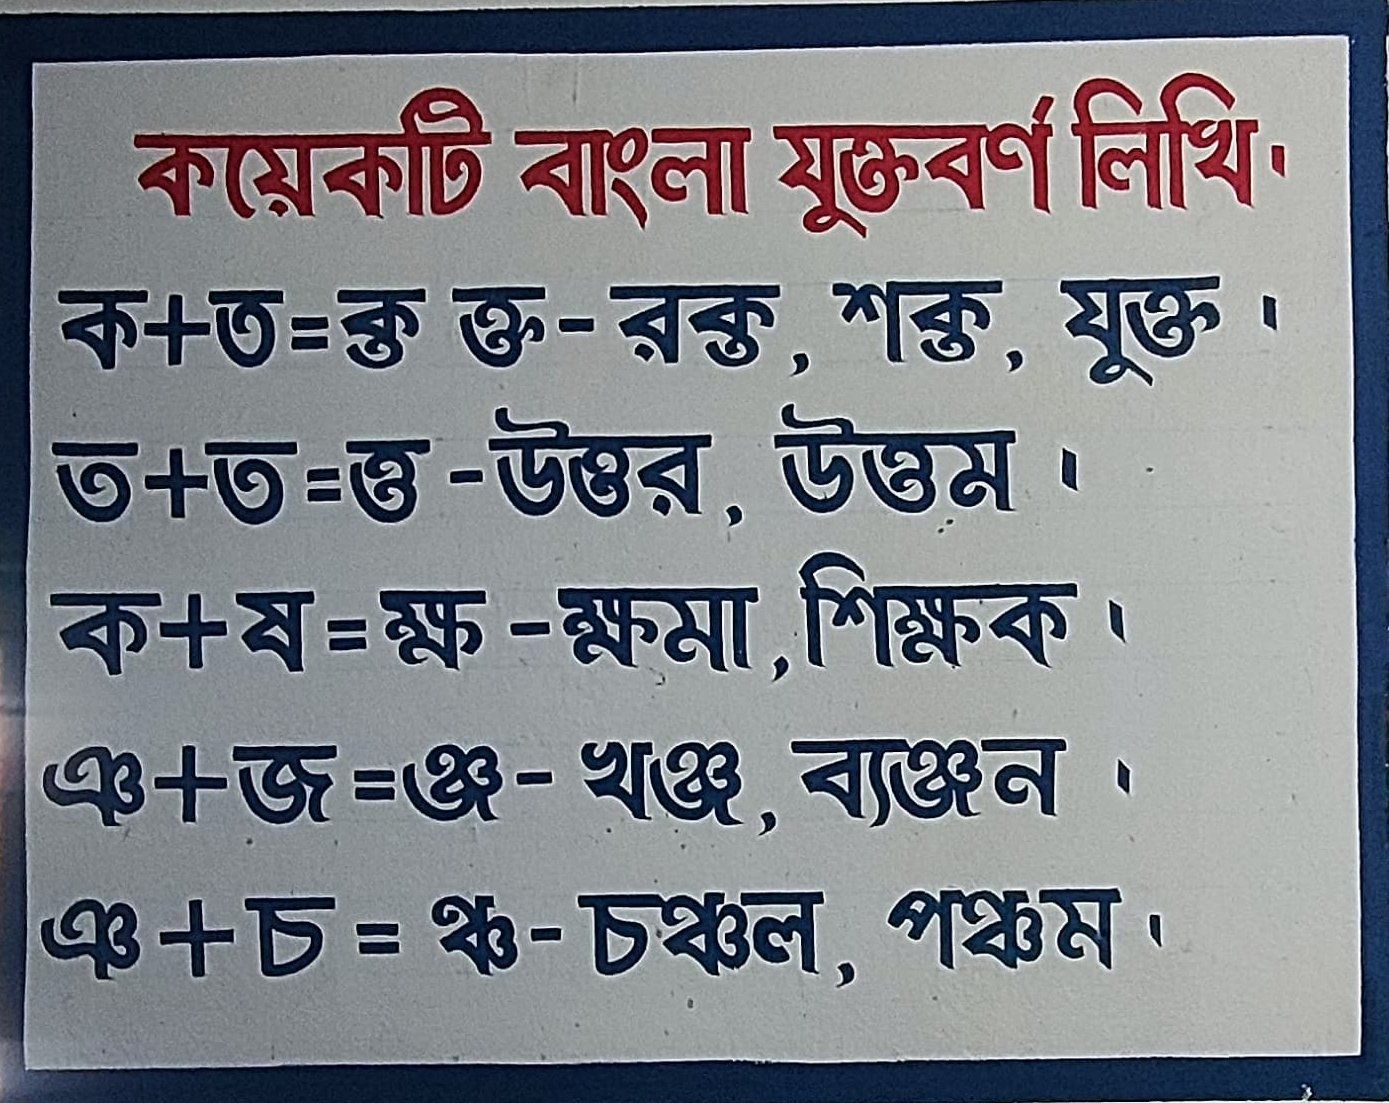 কয়েকটি বাংলা যুক্তবর্ণ লিখি।
ক+ত=ক্ত ক্ত- রক্ত, শক্ত, যুক্ত ।
ত+ত=ত্ত -উত্তর, উত্তম ।
ক+ষ=ক্ষ -ক্ষমা,শিক্ষক ।
ঞ+জ=ঞ্জ- খঞ্জ, ব্যঞ্জন ।
ঞ+চ = ঞ্চ- চঞ্চল, পঞ্চম ।